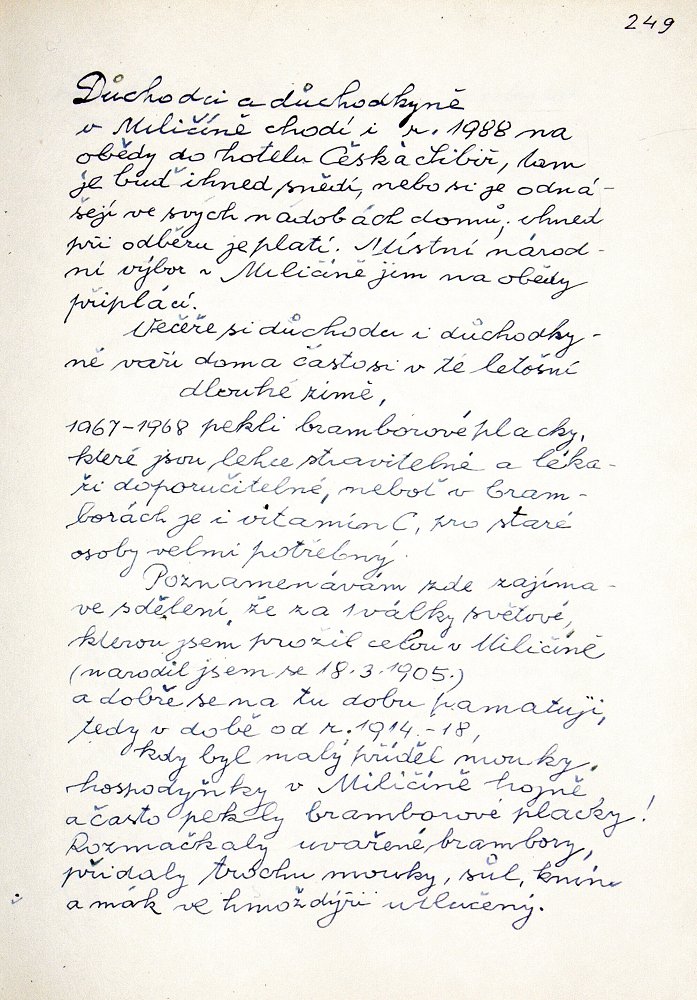 249
Důchodci a důchodkyně
v Miličíně chodí i r. 1988 na
obědy do hotelu Česká Sibiř, tam
je buď ihned snědí, nebo si je odná-
šejí ve svých nádobách domů, ihned
při odběru je platí. Místní národ-
ní výbor v Miličíně jim na obědy
připlácí.
Večeře si důchodci i důchodky-
ně vaří doma často si v té letošní
dlouhé zimě,
1967-1968 pekli bramborové placky,
které jsou lehce stravitelné a léka-
ři doporučitelné, neboť v bram-
borách je i vitamín C, pro staré
osoby velmi potřebný.
Poznamenávám zde zajíma-
ve sdělení že za 1 války světové,
kterou jsem prožil celou v Miličíně
(narodil jsem se 18.3.1905.)
a dobře se na tu dobu pamatuji,
tedy v době od r. 1914.-18,
kdy byl malý příděl mouky,
hospodyňky v Miličíně hojně
a často pekly bramborové placky!
Rozmačkaly uvařené brambory,
přidaly trochu mouky, sůl, kmín
a mák ve hmoždýři utlučený.